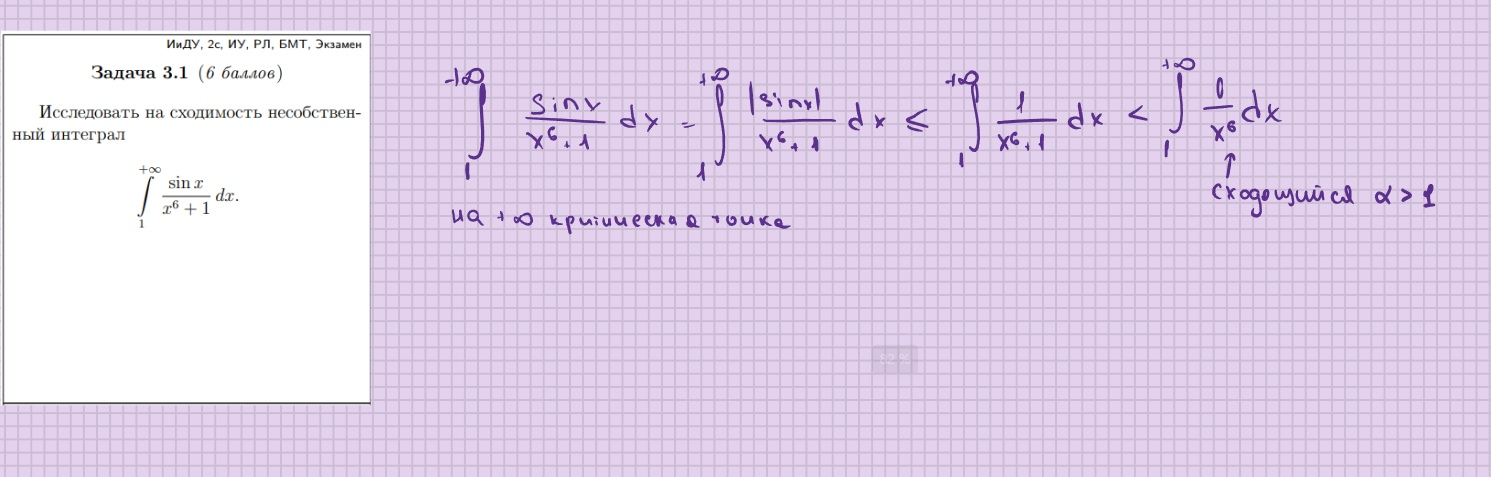 ИиДУ, 2с, ИУ, РЛ, БМТ, Экзамен
Задача 3.1 (6 баллов)
Исследовать на сходимость несобствен-
ный интеграл
+∞
∫ sin x / x⁶ + 1 dx.
1
+∞ +∞ +∞ +∞
∫ sinx / x⁶+1 dx = ∫ |sinx| / x⁶+1 dx ≤ ∫ 1 / x⁶+1 dx < ∫ 1 / x⁶ dx
1 1 1 1
↑
сходящийся α > 1
на +∞ критическая точка
62 %